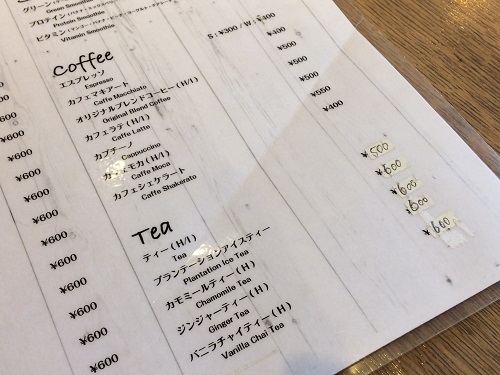 グリーン
Green Smoothie
プロテイン
Protein Smoothie
ビタミン
Vitamin Smoothie
Coffee
エスプレッソ S : ¥300 / W : ¥400
Espresso
カフェマキアート ¥400
Caffe Macchiato
オリジナルブレンドコーヒー(H/I) ¥500
Original Blend Coffee
カフェラテ(H/I) ¥500
Caffe Latte
カプチーノ ¥500
Cappuccino
カフェモカ(H/I) ¥550
Caffe Moca
カフェシェケラート ¥400
Caffe Shakerato
Tea
ティー(H/I) ¥500
Tea
プランテーションアイスティー ¥600
Plantation Ice Tea
カモミールティー(H) ¥600
Chamomile Tea
ジンジャーティー(H) ¥600
Ginger Tea
バニラチャイティー(H) ¥600
Vanilla Chai Tea
¥600
¥600
¥600
¥600
¥600
¥600
¥600
¥600
¥600
¥600
¥600
¥600